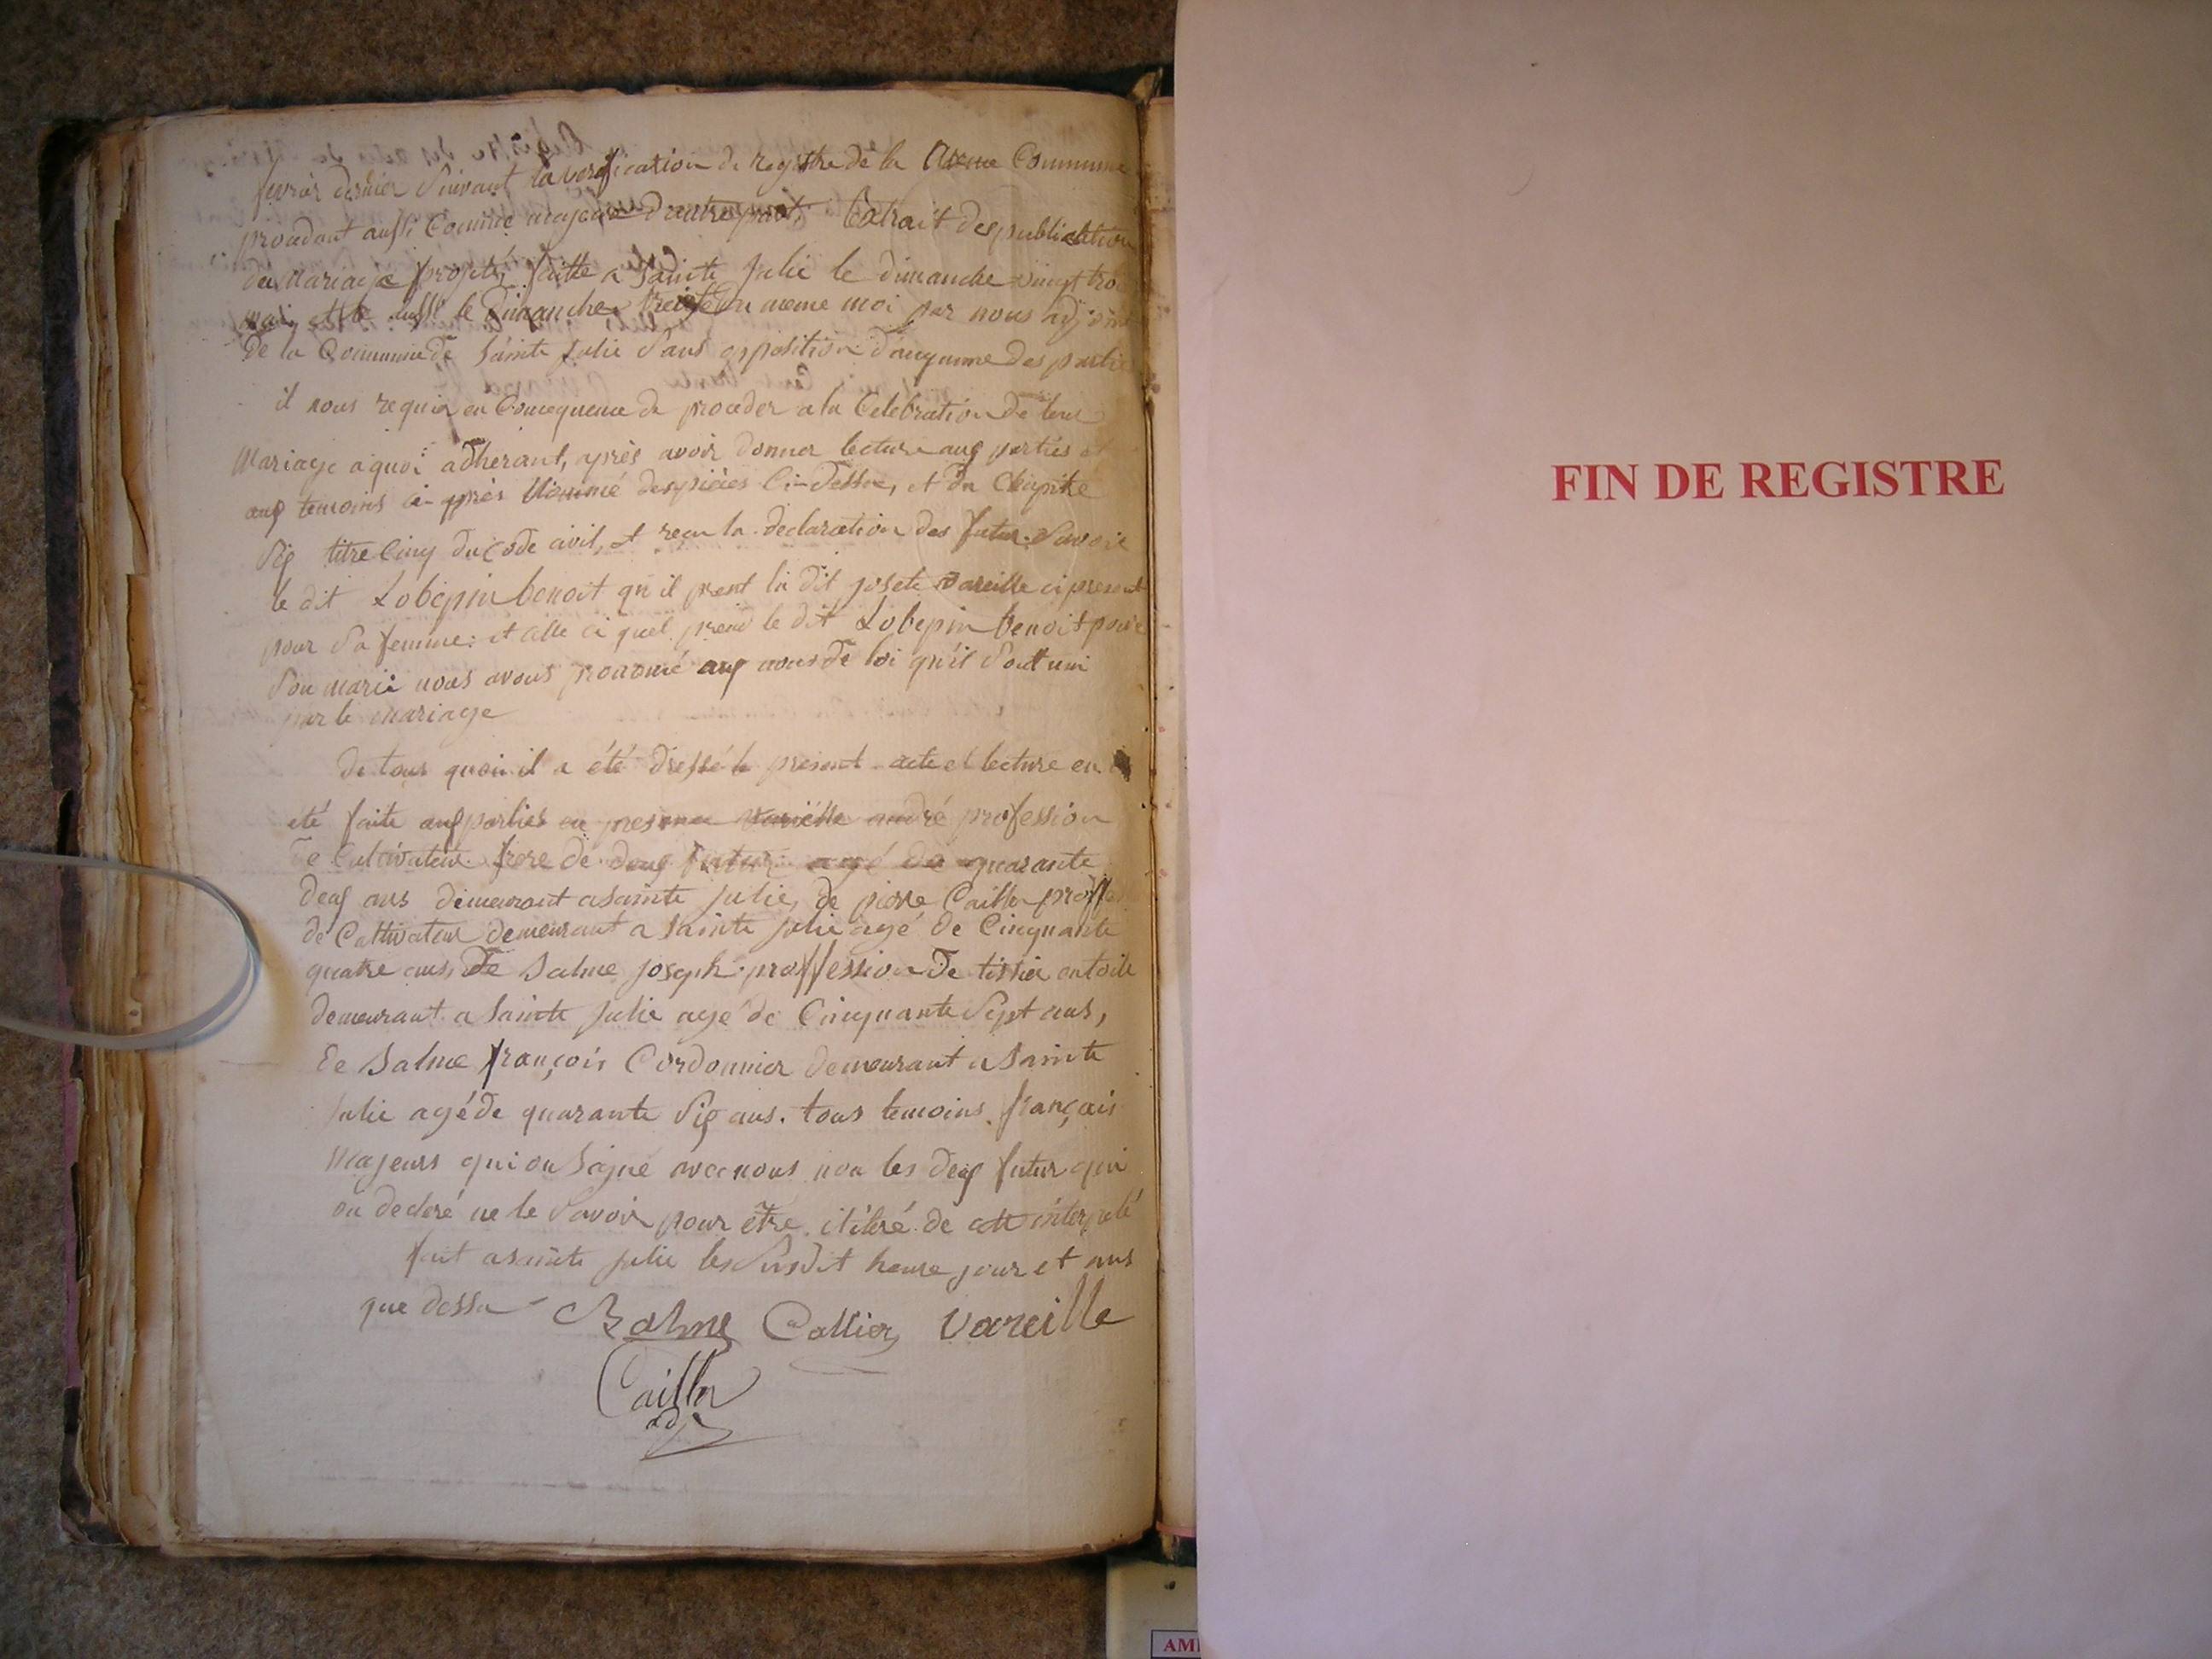 fevrier dernier suivant la verification du registre de la meme Commune
procedant aussi Comme majeur d'autre part, Extrait des publication
du Mariage projeté, faitte a Sainte Julie le dimanche vingt trois
mai, et le aussi le Dimanche trente du meme moi par nous adjoint
de la Commune de Sainte Julie Sans opposition d'auqunne des partie
il nous requir en Consequence de proceder a la Celebration de leur
Mariage a quoi adherant, après avoir donner lecture aux parties et
aux temoins ci-après Nommé des pièces Ci-Dessu, et du Chapitre
Six titre Cinq du Code civil, et reçu la declaration des futur. Savoir
le dit Lobepin benoit qu'il prent la dit josete vareille ci present
pour Sa femme: et elle ci quel prend le dit Lobepin benoit pour
Son marii nous avons prononcé aux nons de loi qu'il Sont uni
par le mariage
De tous quoi il a été dressé le present acte et lecture en a
été faite aux parties en presence Vareille andré profession
De Cultivateur frere de futur agé de quarante
Deux ans demeurant a sainte Julie, de pierre Cailler proffe
de Cultivateur demeurant a Sainte Julie agé de Cinquante
quatre ans, De Balme joseph proffession De tissier en toile
demeurant a Sainte Julie agé de Cinquante Sept ans,
De Balme françois Cordonnier demeurant a Sainte
Julie agé de quarante Six ans. tous temoins français
Majeurs qui on Signé avec nous non les deux futur qui
on decleré ne le Savoir pour être ilitéré de interpelé
fait a sainte Julie les Susdit heure jour et ans
que dessu Balme Callier Vareille
Cailler
adj
FIN DE REGISTRE
AMI